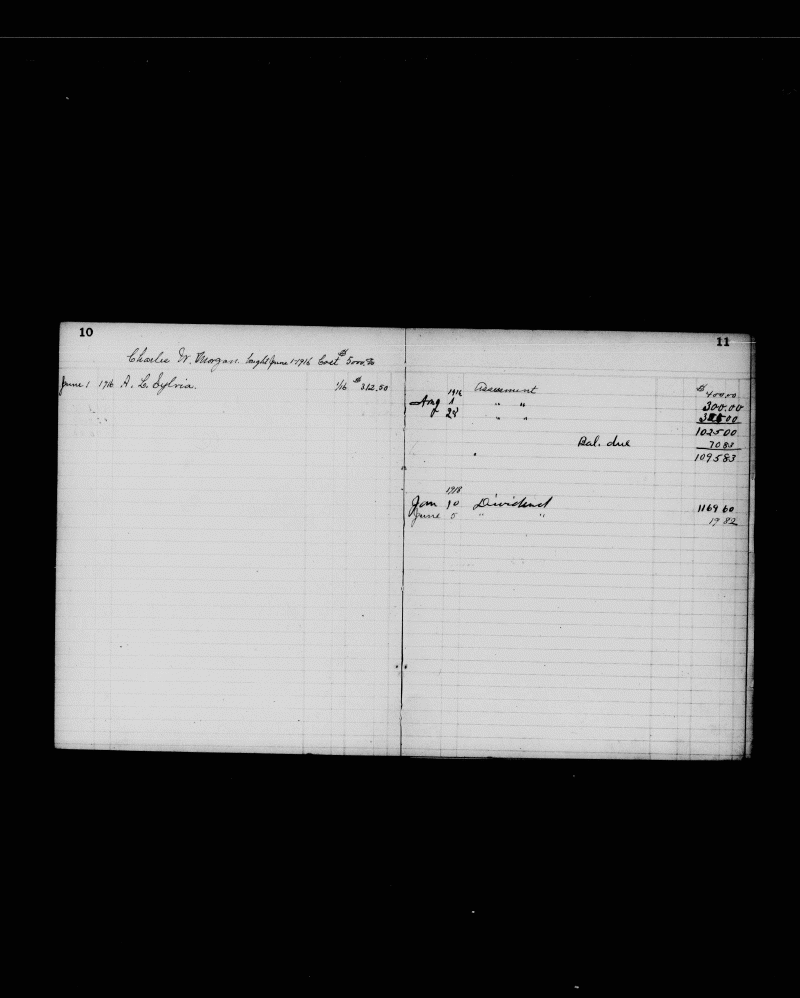 10
Charles W. Morgan. bought June 1-1916 Cost $5000.00
June 1 1916 A. L. Sylvia. 1/16 $312.50
11
1916 Assessment $400.00
Aug 1 " " 300.00
" 28 " " 325 00
1025 00
Bal. due 70 83
1095 83
1918
Jan 10 Dividend 1169 60
June 5 " " 19 82